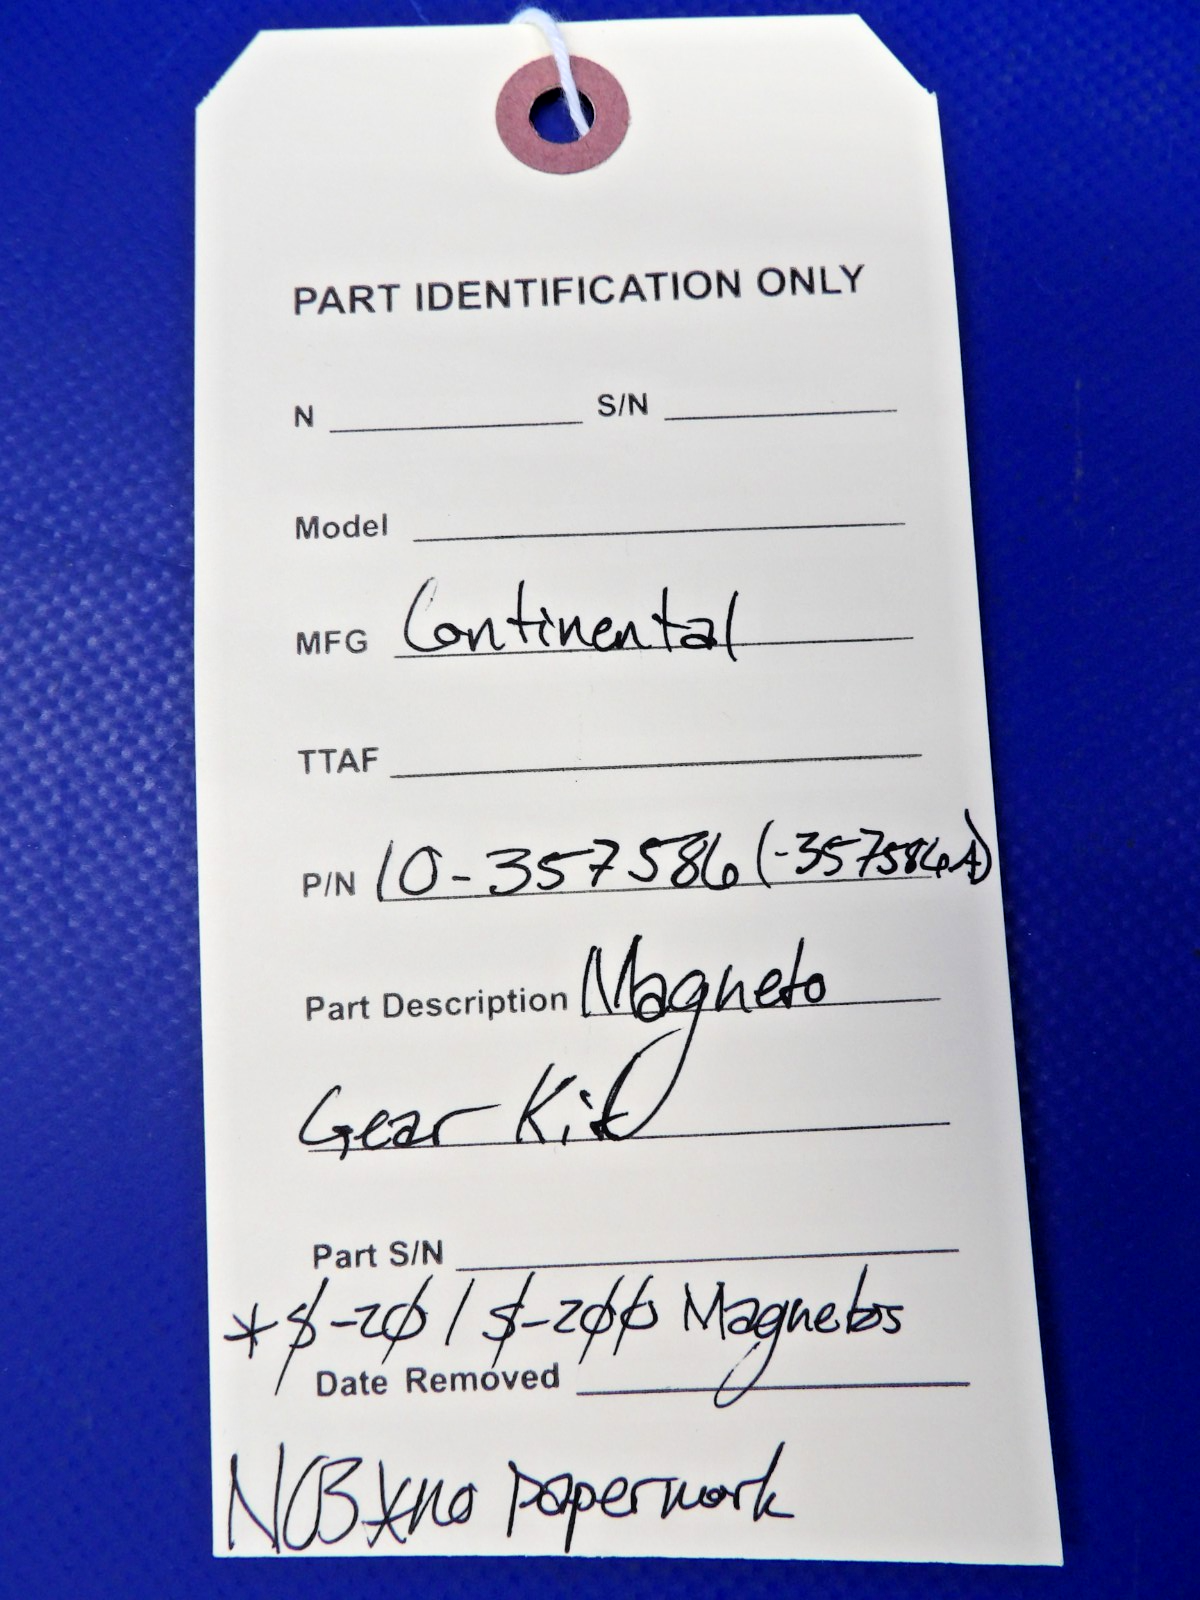 PART IDENTIFICATION ONLY
N S/N
Model
MFG Continental
TTAF
P/N 10-357586 (-357586A)
Part Description Magneto
Gear Kit
Part S/N
*S-20 / S-200 Magnetos
Date Removed
NOB *no paperwork